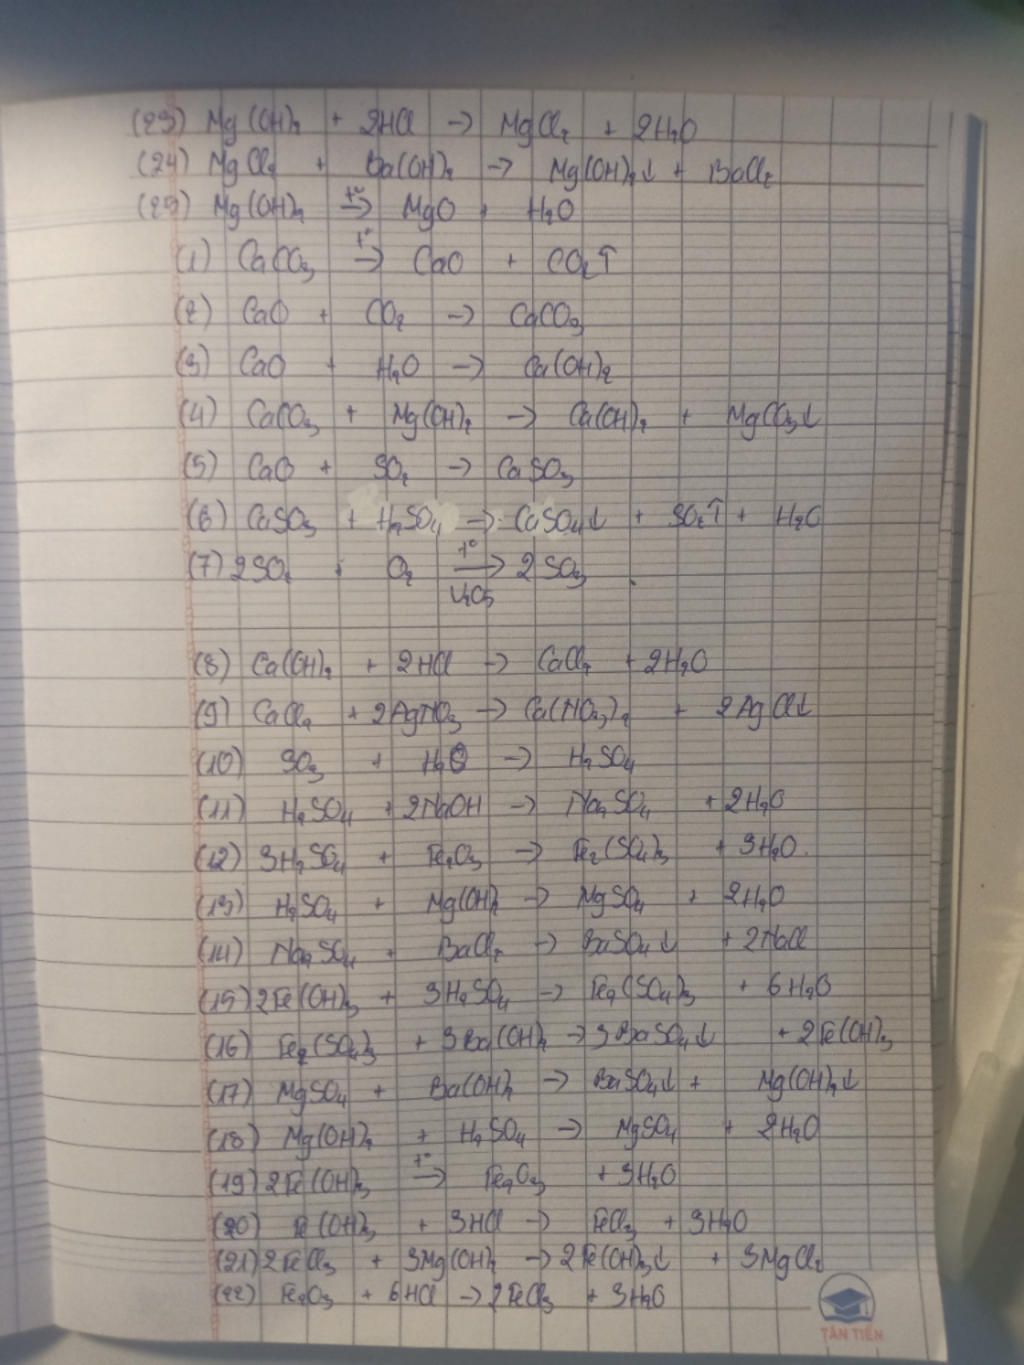 (23) Mg(OH)₂ + 2HCl → MgCl₂ + 2H₂O
(24) MgCl₂ + Ba(OH)₂ → Mg(OH)₂↓ + BaCl₂
(25) Mg(OH)₂ t°→ MgO + H₂O
(1) CaCO₃ t°→ CaO + CO₂↑
(2) CaO + CO₂ → CaCO₃
(3) CaO + H₂O → Ca(OH)₂
(4) CaCO₃ + Mg(OH)₂ → Ca(OH)₂ + MgCO₃↓
(5) CaO + SO₂ → CaSO₃
(6) CaSO₃ + H₂SO₄ → CaSO₄↓ + SO₂↑ + H₂O
(7) 2SO₂ + O₂ t°→ 2SO₃
V₂O₅
(8) Ca(OH)₂ + 2HCl → CaCl₂ + 2H₂O
(9) CaCl₂ + 2AgNO₃ → Ca(NO₃)₂ + 2AgCl↓
(10) SO₃ + H₂O → H₂SO₄
(11) H₂SO₄ + 2NaOH → Na₂SO₄ + 2H₂O
(12) 3H₂SO₄ + Fe₂O₃ → Fe₂(SO₄)₃ + 3H₂O.
(13) H₂SO₄ + Mg(OH)₂ → MgSO₄ + 2H₂O
(14) Na₂SO₄ + BaCl₂ → BaSO₄↓ + 2NaCl
(15) 2Fe(OH)₃ + 3H₂SO₄ → Fe₂(SO₄)₃ + 6H₂O
(16) Fe₂(SO₄)₃ + 3Ba(OH)₂ → 3BaSO₄↓ + 2Fe(OH)₃
(17) MgSO₄ + Ba(OH)₂ → BaSO₄↓ + Mg(OH)₂↓
(18) Mg(OH)₂ + H₂SO₄ → MgSO₄ + 2H₂O
(19) 2Fe(OH)₃ t°→ Fe₂O₃ + 3H₂O
(20) Fe(OH)₃ + 3HCl → FeCl₃ + 3H₂O
(21) 2FeCl₃ + 3Mg(OH)₂ → 2Fe(OH)₃↓ + 3MgCl₂
(22) Fe₂O₃ + 6HCl → 2FeCl₃ + 3H₂O
TÂN TIẾN